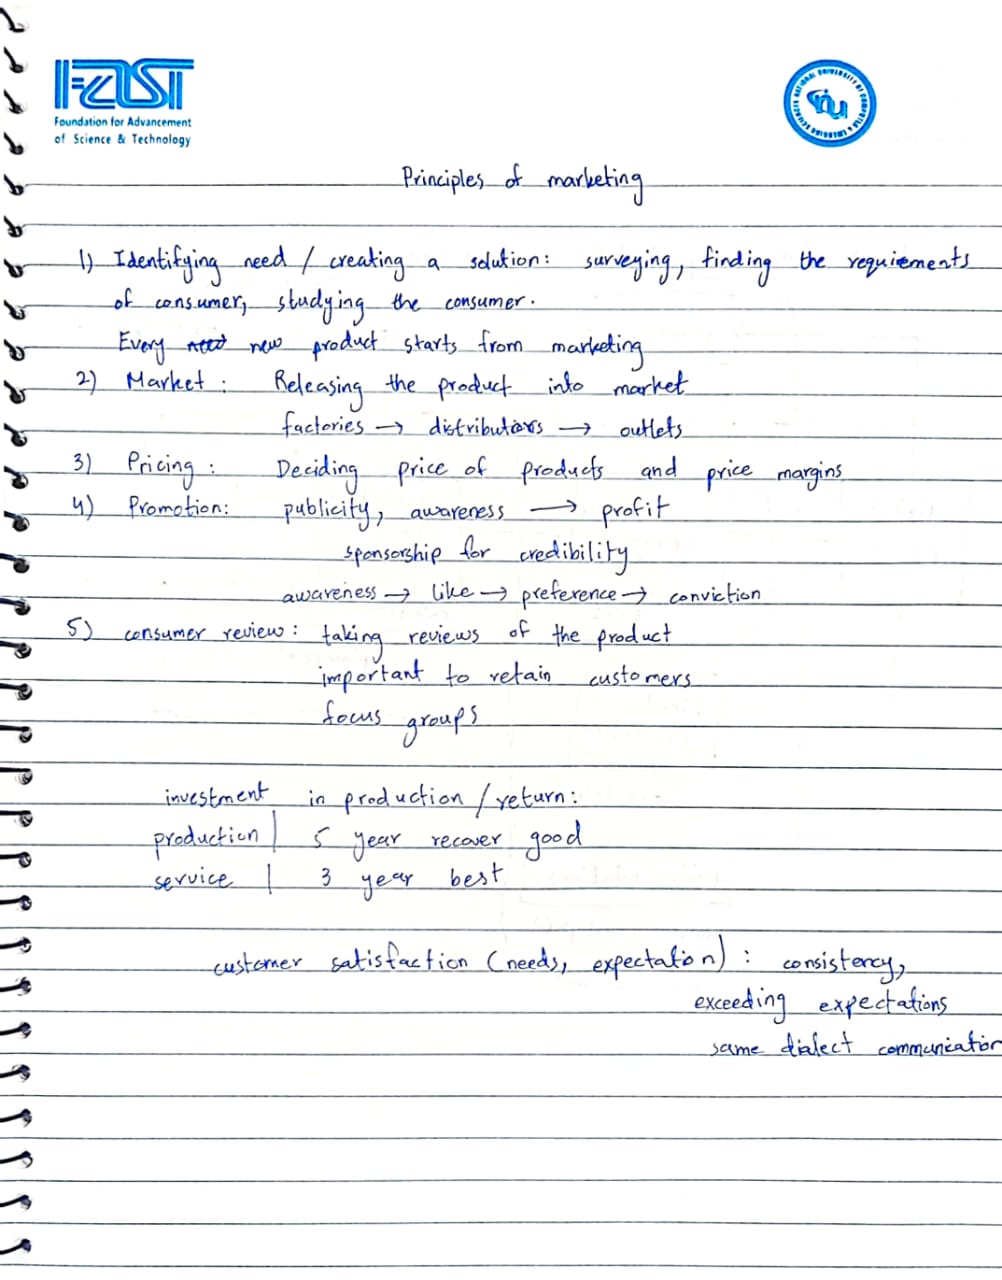 FAST
Foundation for Advancement
of Science & Technology
NATIONAL UNIVERSITY OF COMPUTER & EMERGING SCIENCES
nu
Principles of marketing
1) Identifying need / creating a solution: surveying, finding the requirements
of consumer, studying the consumer.
Every new product starts from marketing
2) Market: Releasing the product into market
factories → distributors → outlets
3) Pricing: Deciding price of products and price margins
4) Promotion: publicity, awareness → profit
sponsorship for credibility
awareness → like → preference → conviction
5) consumer review: taking reviews of the product
important to retain customers
focus groups
investment in production / return:
production | 5 year recover good
service | 3 year best
customer satisfaction (needs, expectation): consistency,
exceeding expectations
same dialect communication